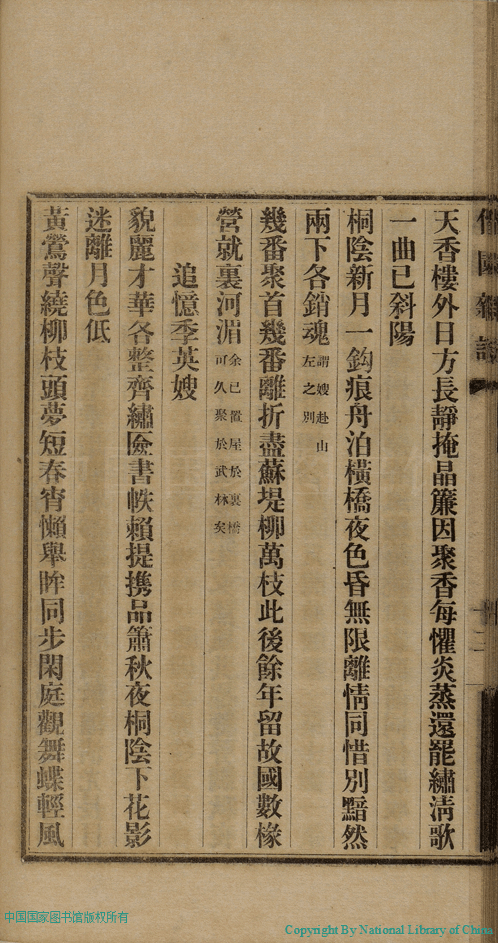 天香樓外日方長靜掩晶簾因聚香每懼炎蒸還罷繡淸歌
一曲已斜陽
桐陰新月一鈎痕舟泊橫橋夜色昏無限離情同惜別黯然
兩下各銷魂謂嫂赴山左之別
幾番聚首幾番離折盡蘇堤柳萬枝此後餘年留故國數椽
營就裏河湄余已置屋於裏橋可久聚於武林矣
追憶季英嫂
貌麗才華各整齊繡匳書帙賴提携品簫秋夜桐陰下花影
迷離月色低
黃鶯聲繞柳枝頭夢短春宵懶舉眸同步閑庭觀舞蝶輕風
中国国家图书馆版权所有
Copyright By National Library of China